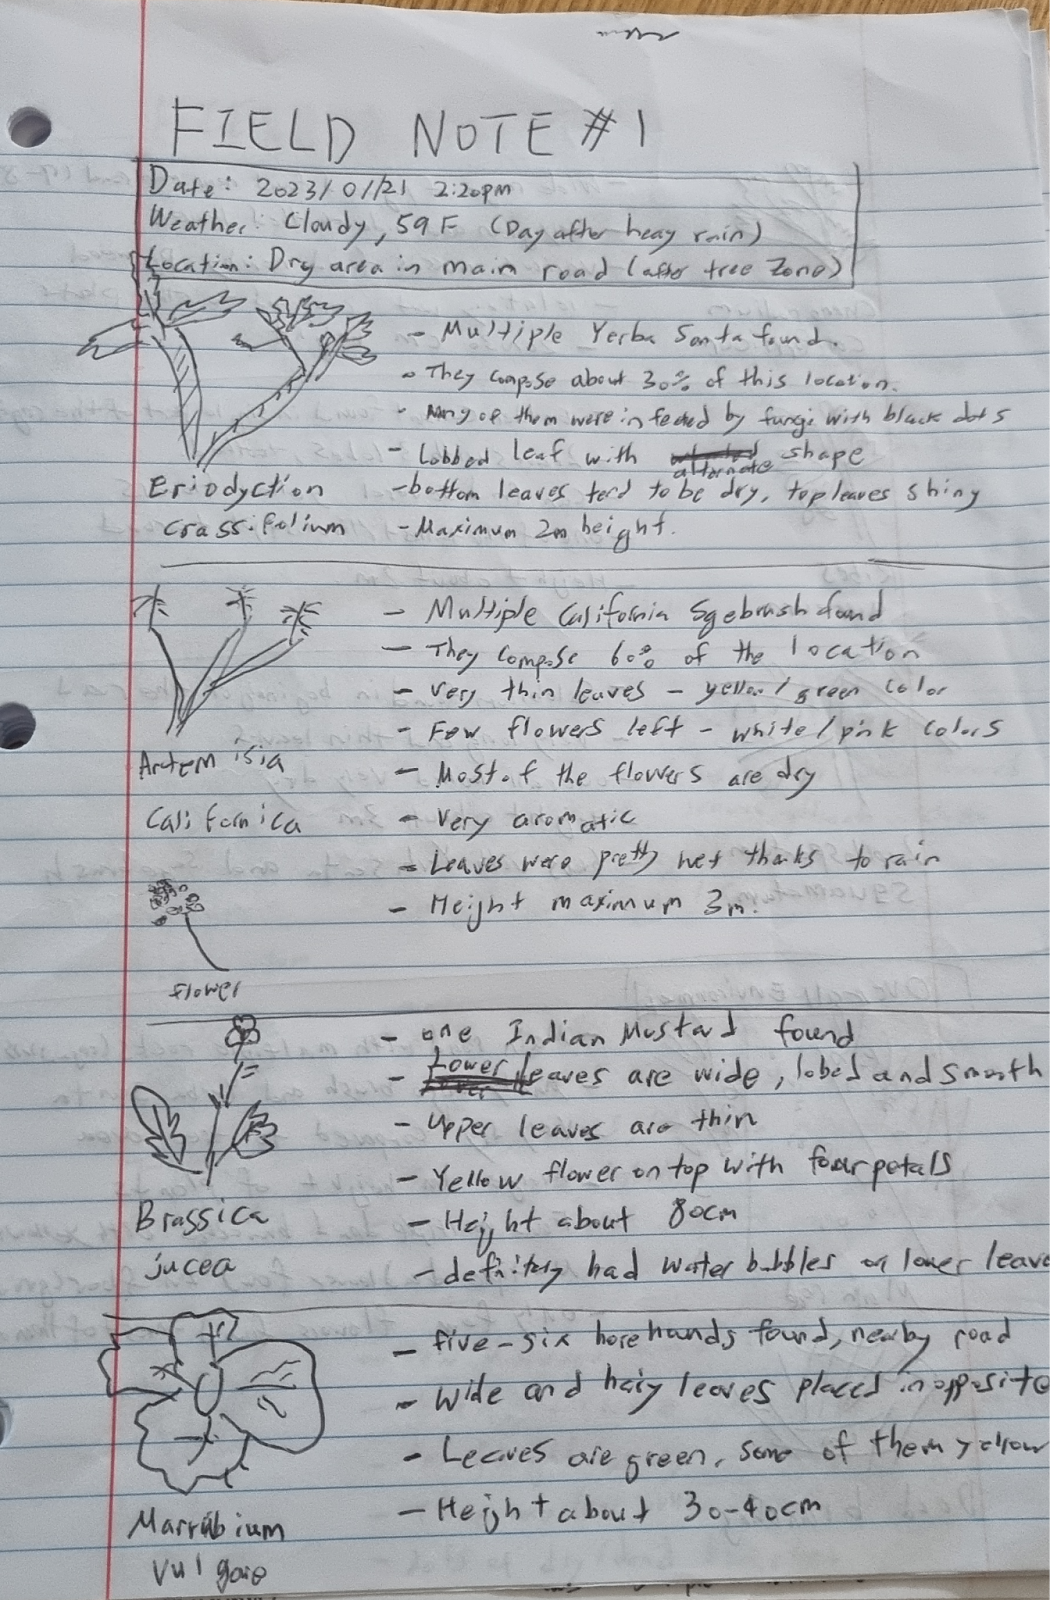 FIELD NOTE #1
Date: 2023/01/21 2:20pm
Weather: Cloudy, 59 F (Day after heay rain)
Location: Dry area in main road (after tree zone)
- Multiple Yerba Santa found.
- They compose about 30% of this location.
- Many of them were infected by fungi with black dots
- Lobbed leaf with alternate shape
- bottom leaves tend to be dry, top leaves shiny
- Maximum 2m height.
Eriodyction
crassifolium
- Multiple California Sgebrush found
- They compose 60% of the location
- Very thin leaves - yellow/green color
- Few flowers left - white/pink colors
- Most of the flowers are dry
- Very aromatic
- Leaves were pretty wet thanks to rain
- Height maximum 3m.
Artemisia
Californica
flower
- one Indian Mustard found
- Lower leaves are wide, lobed and smooth
- Upper leaves are thin
- Yellow flower on top with four petals
- Height about 80cm
- definitely had water bubbles on lower leave
Brassica
jucea
- five-six horehounds found, nearby road
- Wide and hairy leaves placed in opposite
- Leaves are green, some of them yellow
- Height about 30-40cm
Marrubium
Vulgare